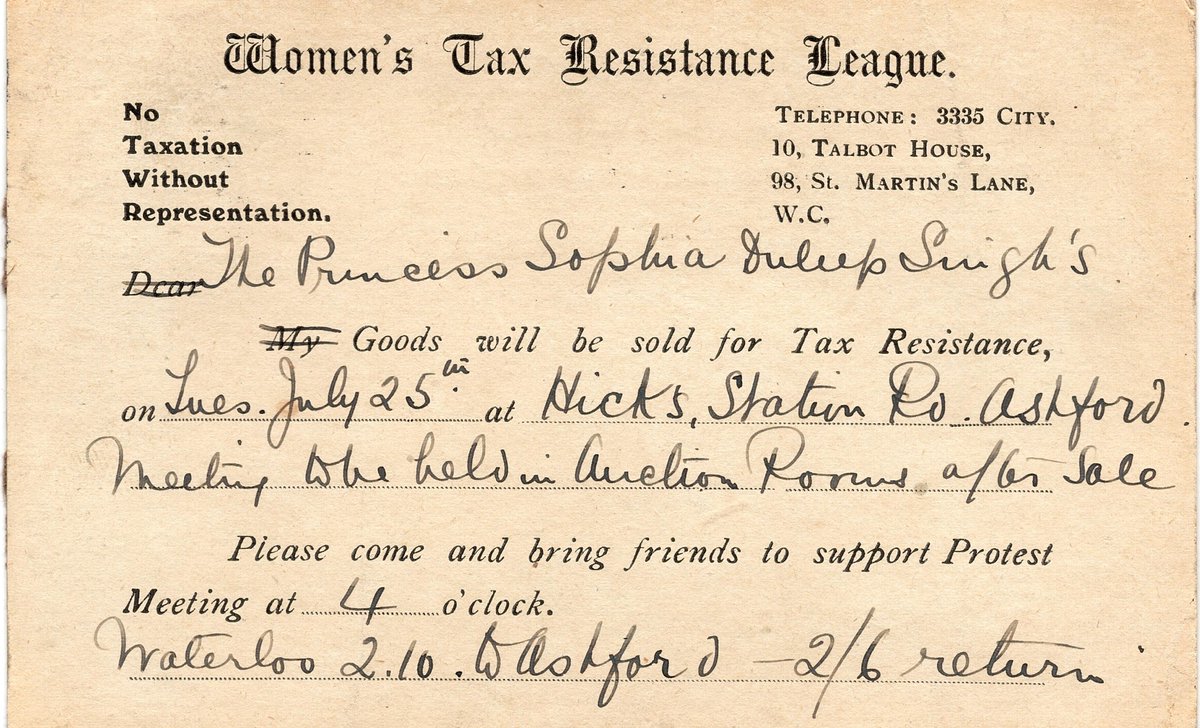 Women's Tax Resistance League.
No
Taxation
Without
Representation.
Telephone: 3335 City.
10, Talbot House,
98, St. Martin's Lane,
W.C.
Dear The Princess Sophia Duleep Singh's
My Goods will be sold for Tax Resistance,
on Tues. July 25th. at Hicks, Station Rd. Ashford.
Meeting to be held in Auction Rooms after Sale
Please come and bring friends to support Protest
Meeting at 4 o'clock.
Waterloo 2.10. to Ashford – 2/6 return